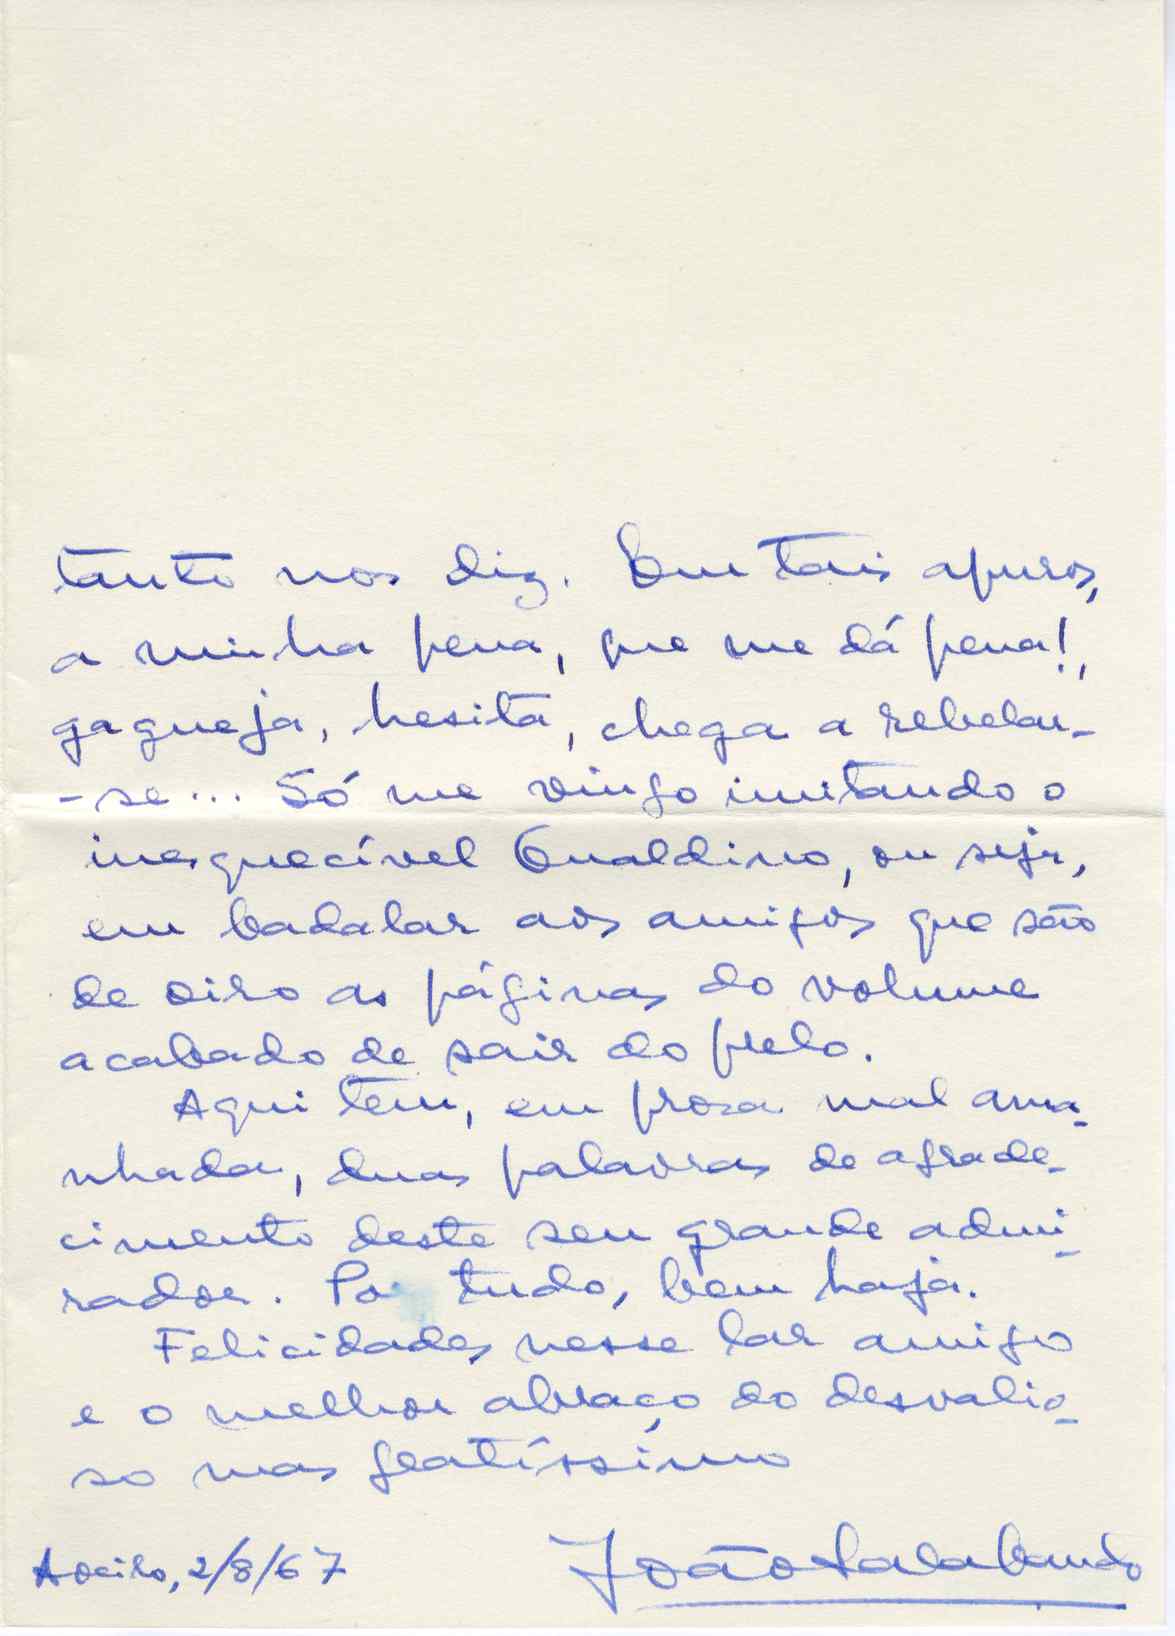 tanto nos diz. Em tais apuros,
a minha pena, que me dá pena!,
gagueja, hesita, chega a rebelar-
-se... Só me vingo imitando o
inesquecível Gualdino, ou seja,
em badalar aos amigos que são
de oiro as páginas do volume
acabado de sair do prelo.
Aqui tem, em prosa mal ama-
nhada, duas palavras de agrade-
cimento deste seu grande admi-
rador. Por tudo, bem haja.
Felicidades nesse lar amigo
e o melhor abraço do desvalio-
so mas gratíssimo
João Salabando
Aveiro, 2/8/67